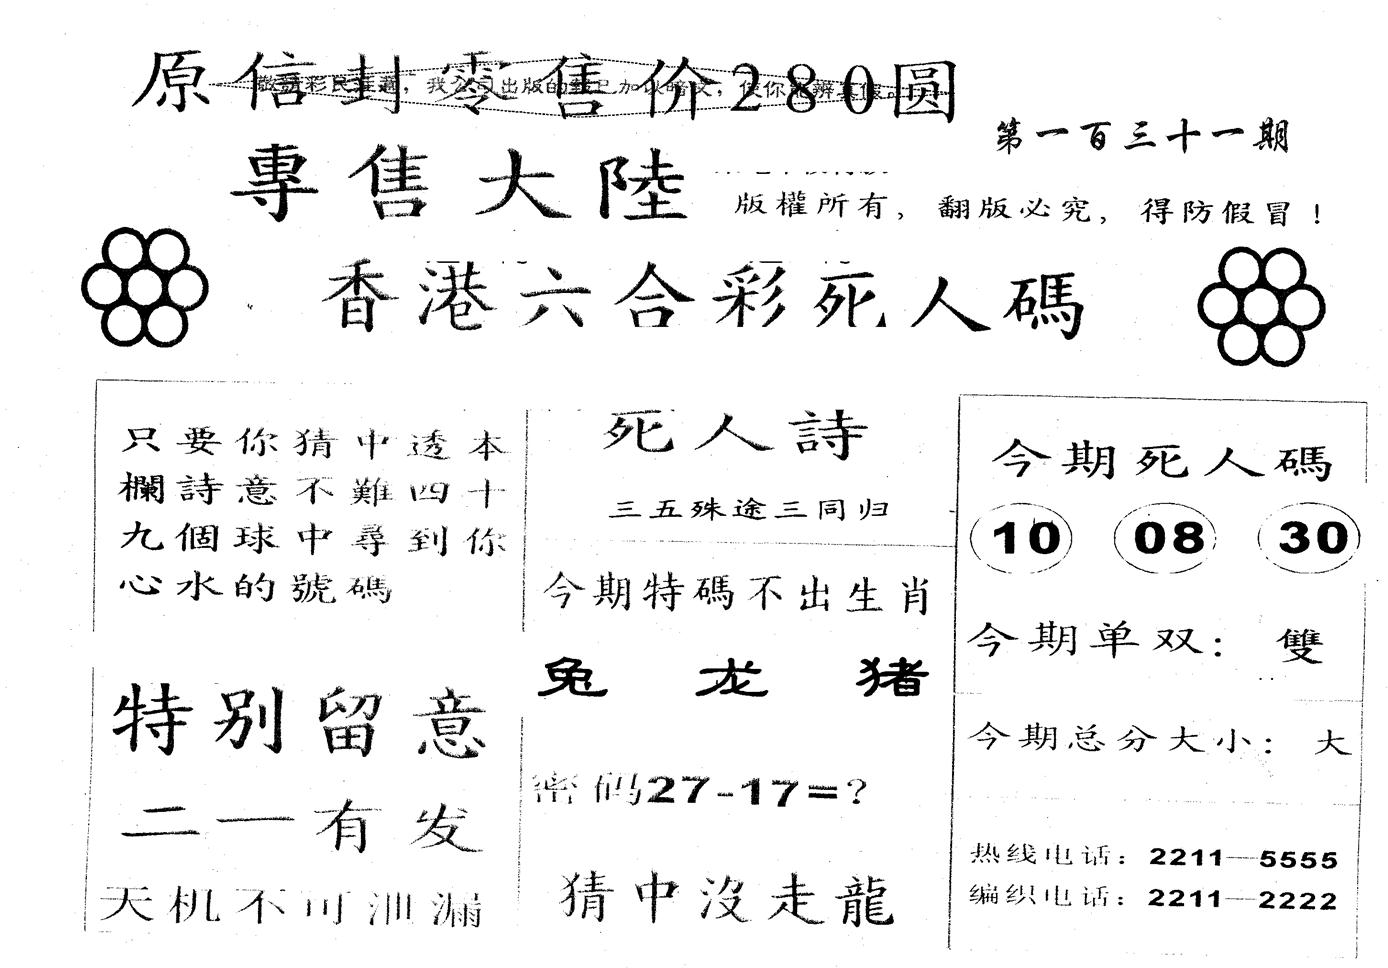 原信封零售价280圆
彩民 我公司出版的 已加以暗 你 辨真假
第一百三十一期
專售大陸
版權所有，翻版必究，得防假冒！
香港六合彩死人碼
只要你猜中透本
欄詩意不難四十
九個球中尋到你
心水的號碼
特别留意
二一有发
天机不可泄漏
死人詩
三五殊途三同归
今期特碼不出生肖
兔 龙 猪
密码27-17=?
猜中沒走龍
今期死人碼
10 08 30
今期单双：雙
今期总分大小：大
热线电话：2211—5555
编织电话：2211—2222